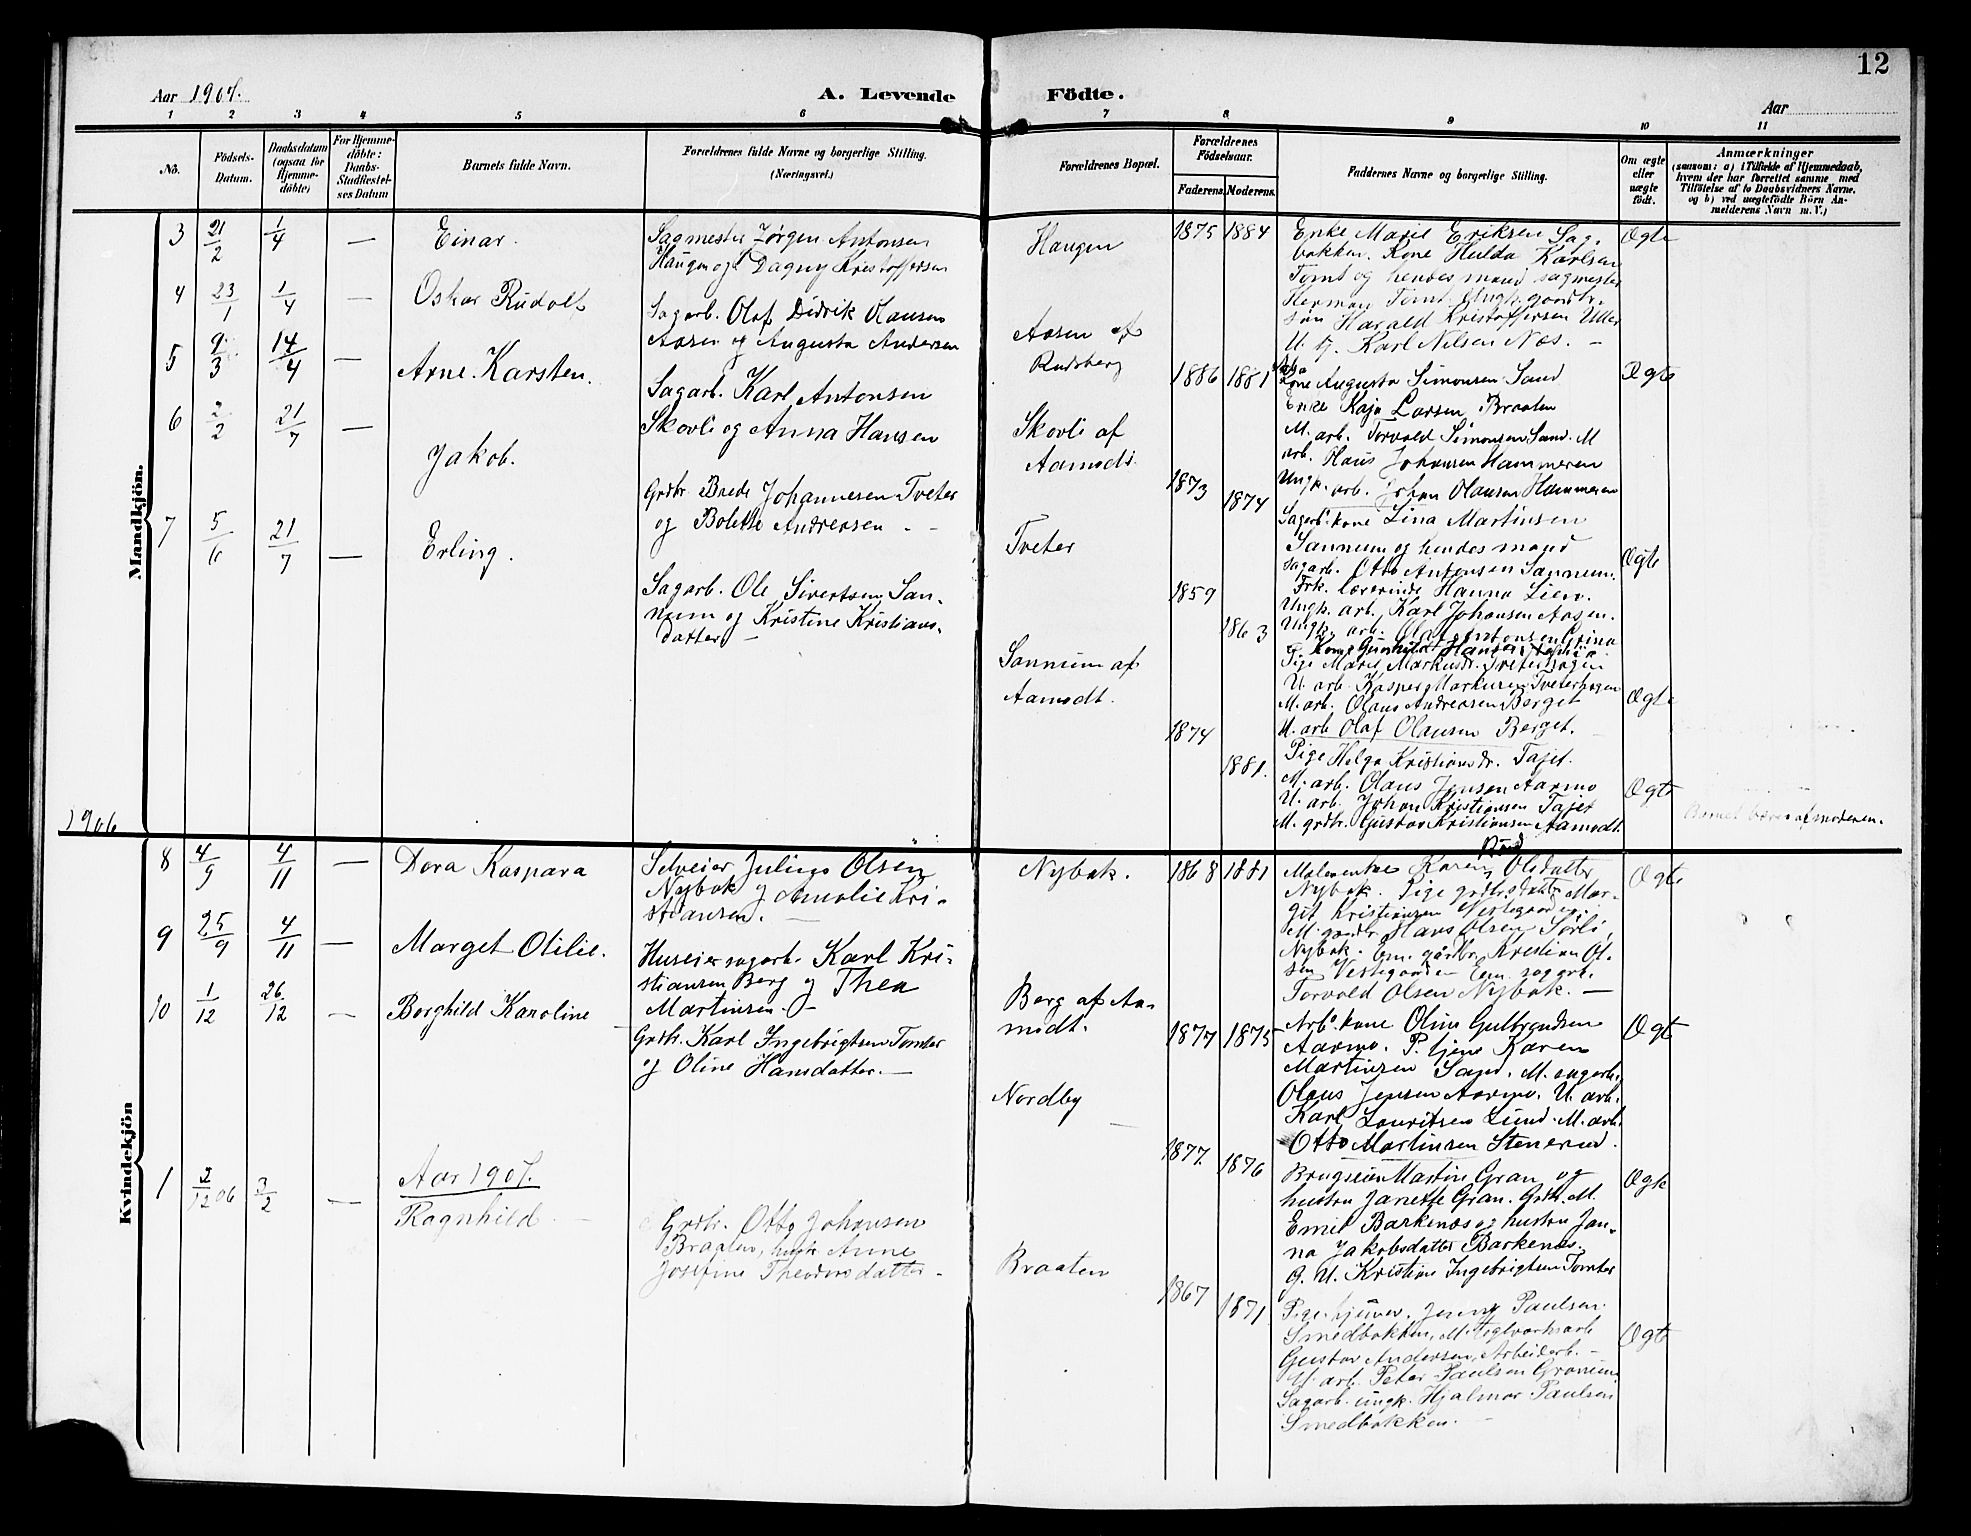 12
Aar 1907.
A. Levende Födte.
Aar
1 2 3 4 5 6 7 8 9 10 11
No.
Födsels-
Datum.
Daabsdatum
(ogsaa for
Hjemme-
döbte)
For Hjemme-
döbte:
Daabs-
Stadfæstel-
ses Datum
Barnets fulde Navn.
Forældrenes fulde Navne og borgerlige Stilling.
(Næringsvei.)
Forældrenes Bopæl.
Forældrenes
Födselsaar.
Faderens.
Moderens.
Faddernes Navne og borgerlige Stilling.
Om ægte
eller
uægte
födt.
Anmærkninger
(saasom: a) i Tilfælde af Hjemmedaab,
hvem der har forrettet samme med
Tilföielse af to Daabsvidners Navne.
og b) ved uægtefödte Börn An-
melderens Navn m. V.)
Mandkjön.
3 21/2 1/4 — Einar.
Sagmester Jørgen Antonsen
Haugen og Dagny Kristoffersen
Haugen
1875 1884
Enke Marie Eriksen Sag-
bakken. Kone Hulda Karlsen
Tomt og hendes mand sagmester
Herman Tomt. Ungk. gaardbr.
søn Harald Kristoffersen Uller
U. g. Karl Nilsen Næs. —
Ægte
4 23/1 1/4 — Oskar Rudolf
Sagarb. Olaf Didrik Hansen
Aasen og Augusta Andersen
Aasen af
Rudsberg
1886 1881
Kone Augusta Simonsen Sand
Enke Kaja Larsen Braaten
M. arb. Torvald Simonsen Sand. M
arb. Hans Johansen Hammeren
Ungk. arb. Johan Olausen Hammeren
Ægte
5 9/3 14/4 — Arne Karsten.
Sagarb. Karl Antonsen
Skovli og Anna Hansen
Skovli af
Aamodt.
1873 1874
Sagarb. kone Lina Martinsen
Sannum og hendes mand
sagarb. Otto Antonsen Sannum.
Frk. lærerinde Hanna Lien.
Ungk. arb. Karl Johansen Aasen.
Ungk. arb. Olaf Antonsen
Ægte
6 2/2 21/7 — Jakob.
Grdbr. Brede Johannesen Tveter
og Bolette Andreasen. —
Tveter
1859 1863
Kone Gunhild Hansen
Pige Marie Markusdr. Tveterhagen
U. arb. Kasper Markusen Tveterhagen
M. arb. Olaus Andreasen Berget
U. arb Olaf Olausen Berget.
Ægte
7 5/6 21/7 — Erling.
Sagarb. Ole Sivertsen San-
num og Kristine Kristians-
datter —
Sannum af
Aamodt.
1874 1881.
Pige Helga Kristiansdr. Tajet.
M. arb. Olaus Jensen Aarmo
U. arb. Johan Kristiansen Tajet
M. grdbr. Gustav Kristiansen Aamodt.
Ægte
Barnet bæres af moderen.
1906
Kvindekjön
8 4/9 4/11 — Dora Kaspara
Selveier Julius Olsen
Nybak og Amalie Kri-
stiansen. —
Nybak.
1868 1881
Karen Olsdatter
Nybak. Pige grdbrs datter Mar-
git Kristiansen Vestegaarden.
M. gaardbr Hans Olsen Sørli,
Nybak. Em. gårdbr. Kristian Ol-
sen Vestegaard — Em. sagarb.
Torvald Olsen Nybak. —
Ægte
9 25/9 4/11 — Marget Otilie.
Huseier sagarb. Karl Kri-
stiansen Berg og Thea
Martinsen. —
Berg af Aa-
modt.
1877 1875
Arb. kone Olina Gulbrandsen
Aarmo. P. tjene Karen
Martinsen Sand. M. sagarb.
Olaus Jensen Aarmo. U. arb.
Karl Lauritsen Lund. M. arb.
Otto Martinsen Stenerud.
Ægte
10 1/12 26/12 — Borghild Karoline
Grdbr. Karl Ingebrigtsen Tomter
og Oline Hansdatter. —
Nordby
1877. 1876
Brugseier Martin Gran og
hustru Janette Gran. Grdb. M.
Emil Barkenæs og hustru Jan-
na Jakobsdatter Barkenæs.
G. U. Kristian Ingebrigtsen Tomter
Ægte
Aar 1907.
1 2/12 06 3/2 — Ragnhild —
Grdbr. Otto Johansen
Braaten, hustr. Anne
Josefine Theodorsdatter —
Braaten
1867 1871
Pige hjemmev. Jenny Paulsen
Smedbakken, M. Teglværksarb
Gustav Andersen, Arbeiderb. —
U. arb. Peter Paulsen
Sagarb. ungk. Hjalmar Paulsen
Smedbakken. —
Ægte